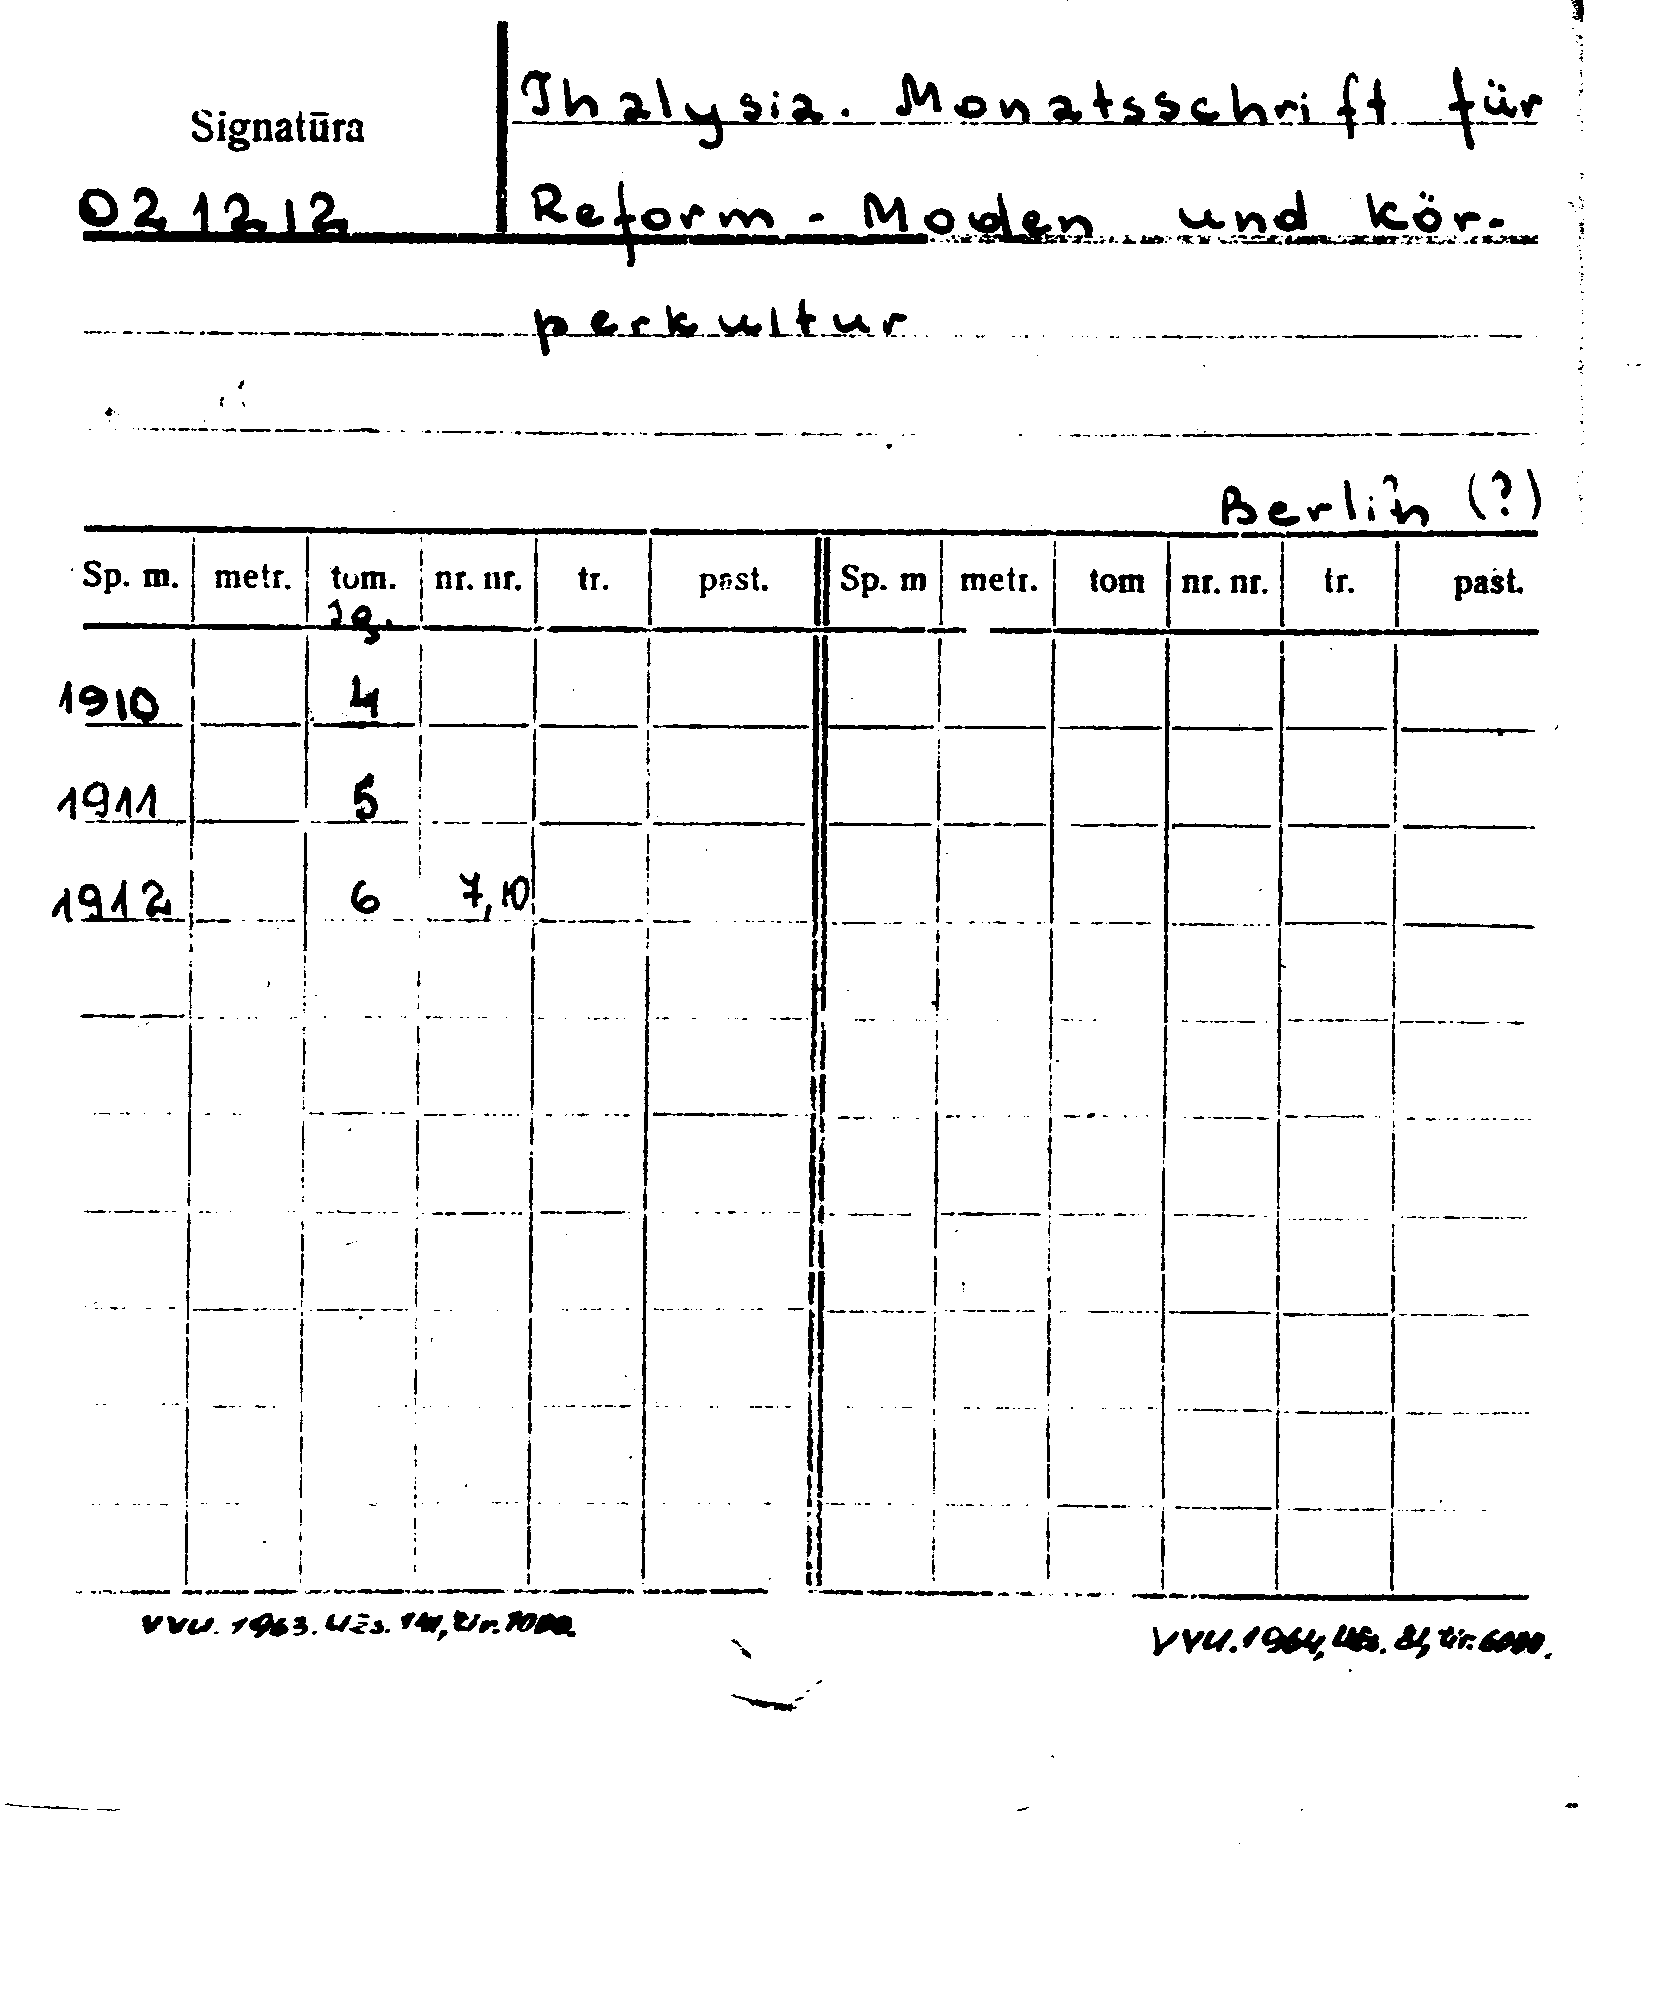 Signatūra
Thalysia. Monatsschrift für
02 12 12
Reform - Moden und kör-
perkultur
Berlin (?)
Sp. m. metr. tom. nr. nr. tr. past. Sp. m metr. tom nr. nr. tr. past.
Jg.
1910 4
1911 5
1912 6 7, 10
VVU. 1963. Užs. 141, tir. 7000.
VVU. 1964, Užs. 81, tir. 6000.